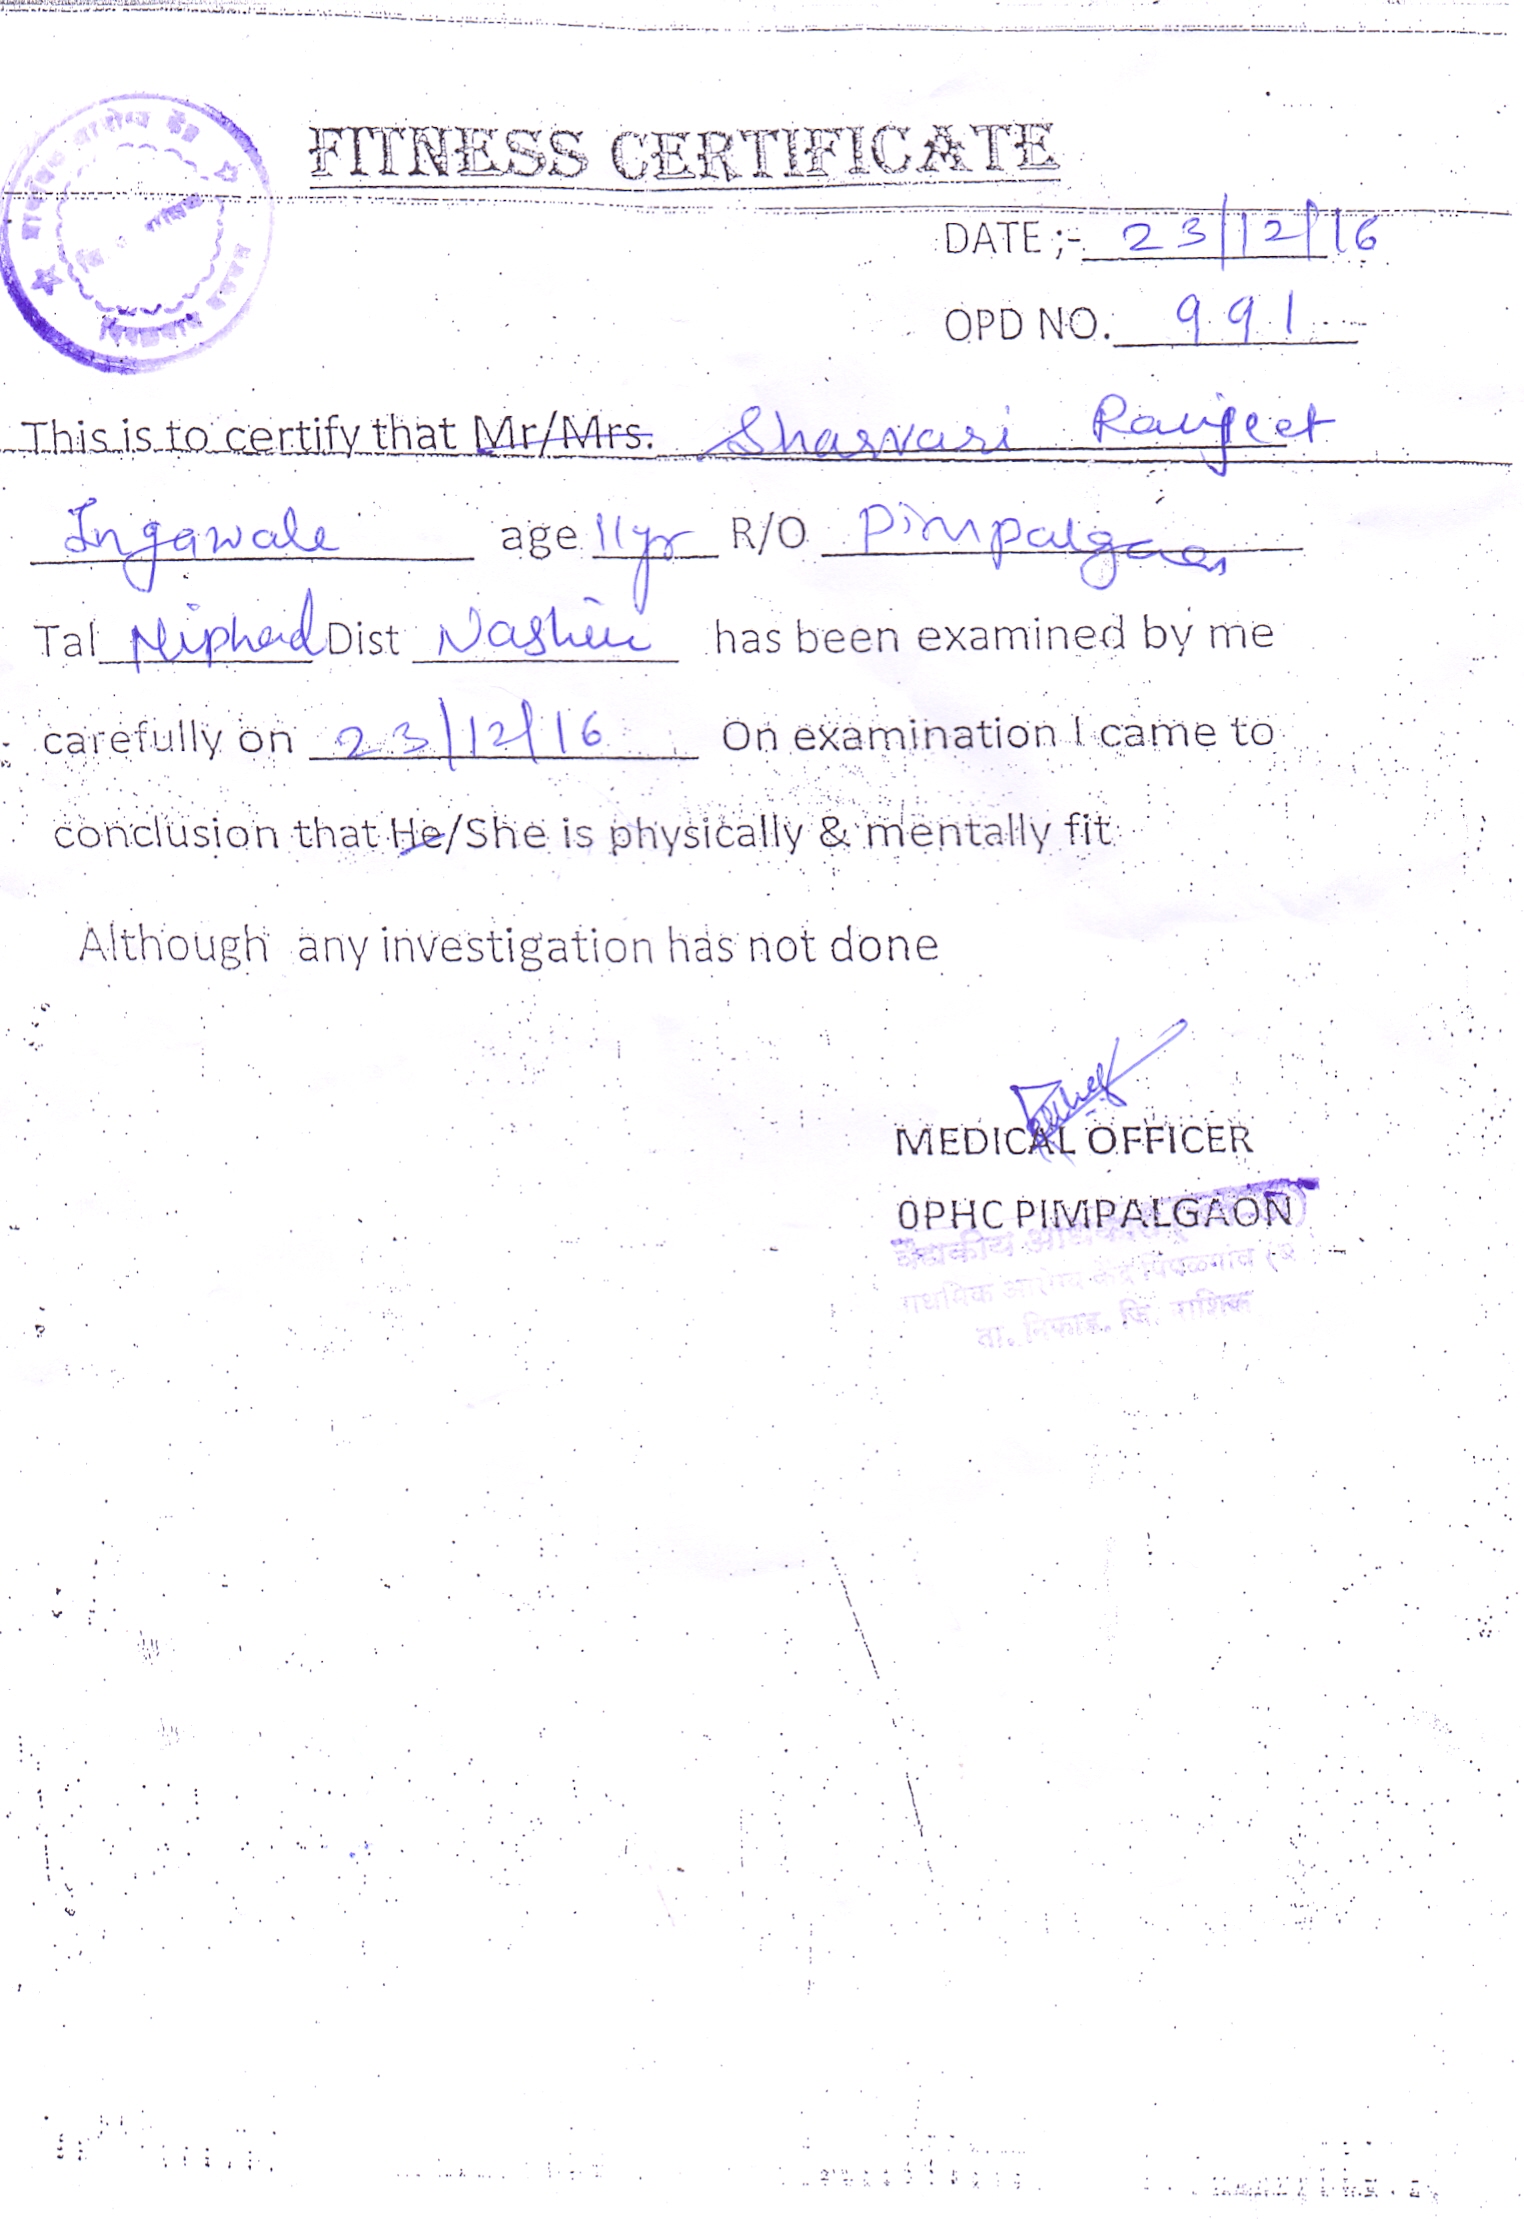 FITNESS CERTIFICATE
DATE ;- 23/12/16
OPD NO. 991
This is to certify that Mr/Mrs. Sharvari Ranjeet
Ingawale age 11yr R/O Pimpalgaon
Tal Niphad Dist Nashik has been examined by me
carefully on 23/12/16 On examination I came to
conclusion that He/She is physically & mentally fit
Although any investigation has not done
MEDICAL OFFICER
0PHC PIMPALGAON
वैद्यकीय
केंद्र पिंपळगांव
ता. निफाड. जि. नाशिक